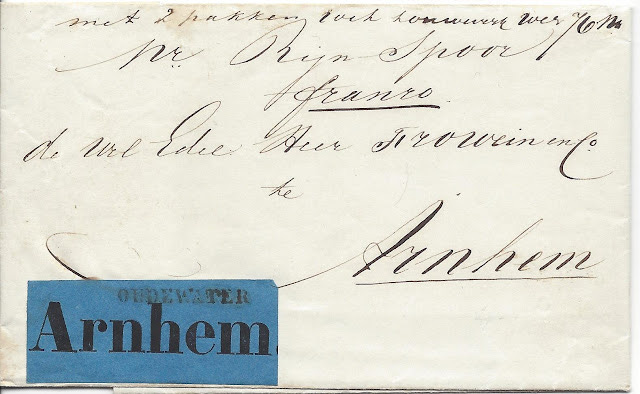 met 2 pakken touwwerk
pr Rijn Spoor
franco
de Wel Edele Heer Frowein en Co
te
Arnhem
OUDEWATER
Arnhem.